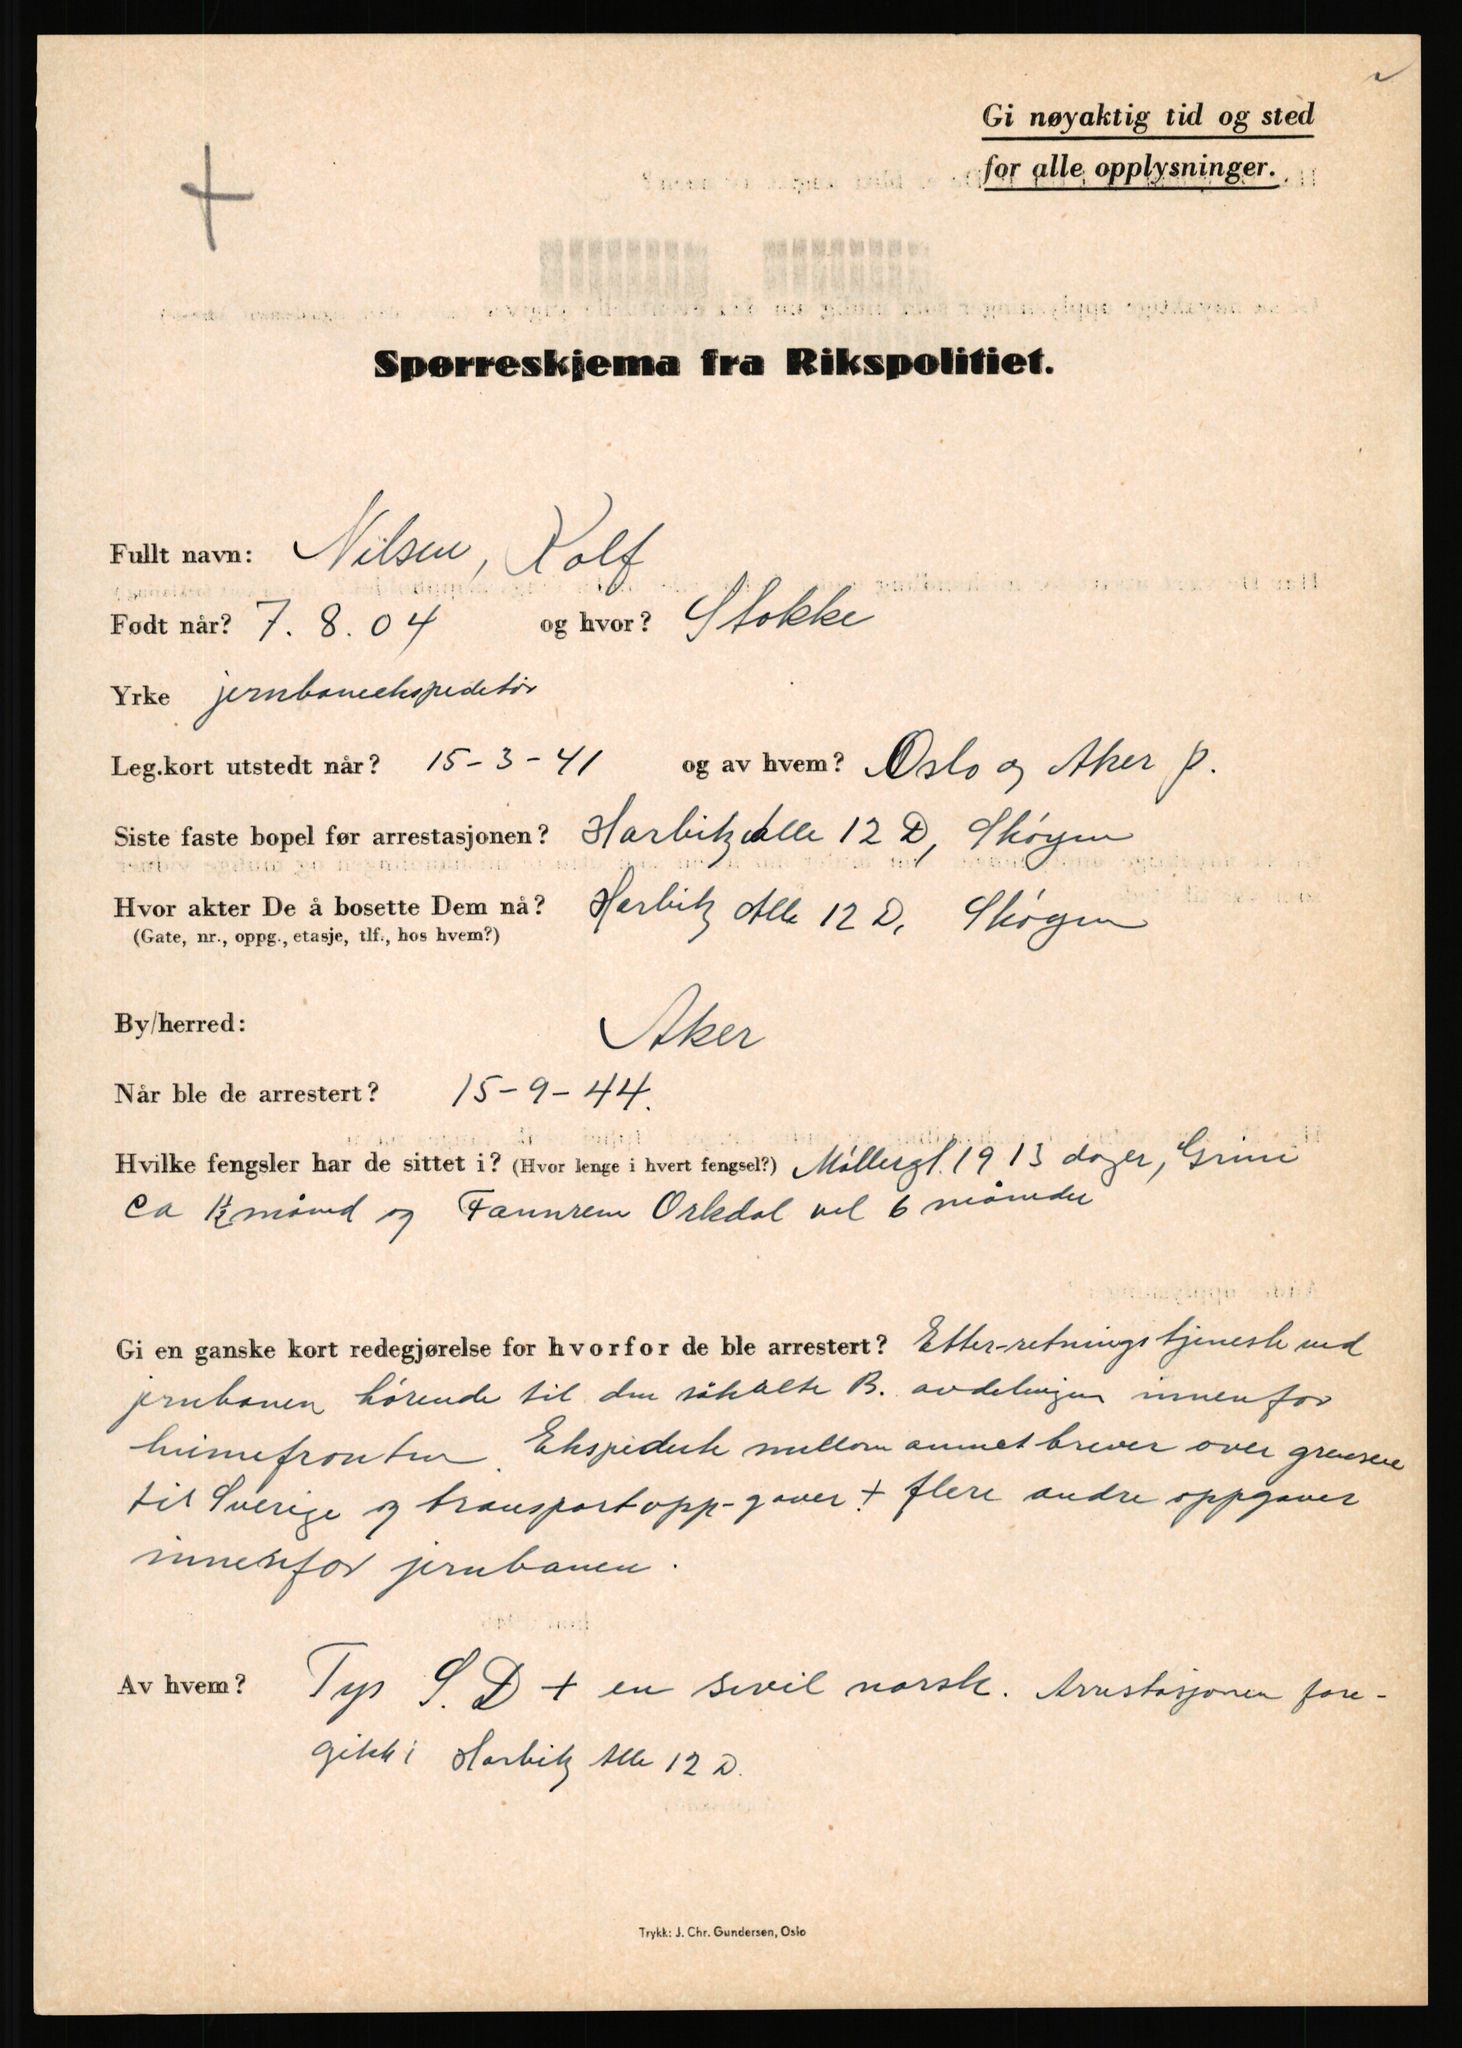 Gi nøyaktig tid og sted
for alle opplysninger.
Spørreskjema fra Rikspolitiet.
Fullt navn: Nilsen, Rolf
Født når? 7. 8. 04 og hvor? Stokke
Yrke jernbaneekspeditør
Leg.kort utstedt når? 15-3-41 og av hvem? Oslo og Aker p.
Siste faste bopel før arrestasjonen? Harbitz Alle 12 D, Skøyen
Hvor akter De å bosette Dem nå? Harbitz Alle 12 D. Skøyen
(Gate, nr., oppg., etasje, tlf., hos hvem?)
By/herred: Aker
Når ble de arrestert? 15-9-44.
Hvilke fengsler har de sittet i? (Hvor lenge i hvert fengsel?) Møllergt. 19 13 dager, Grini
ca 1½ måned og Fannrem Orkdal vel 6 måneder
Gi en ganske kort redegjørelse for hvorfor de ble arrestert? Etter-retningstjeneste ved
jernbanen hørende til den såkalte B. avdelingen innenfor
hjemmefronten. Ekspederte mellom annet brever over grensen
til Sverige og transportopp-gaver + flere andre oppgaver
innenfor jernbanen.
Av hvem? Tys S. D + en sivil norsk. Arrestasjonen fore-
gikk i Harbitz Alle 12 D.
Trykk: J. Chr. Gundersen, Oslo